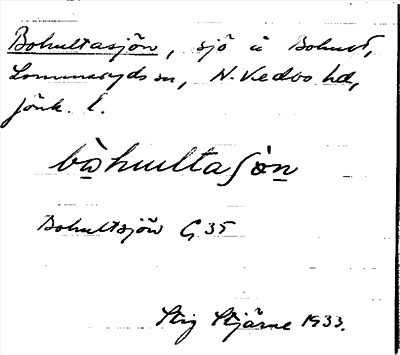 Bohultasjön, sjö i Bohult,
Lommaryds sn, N. Vedbo hd,
Jönk. l.
bo̠hultaʃö̀n̠
Bohultsjön G 35
Stig Stjärne 1933.